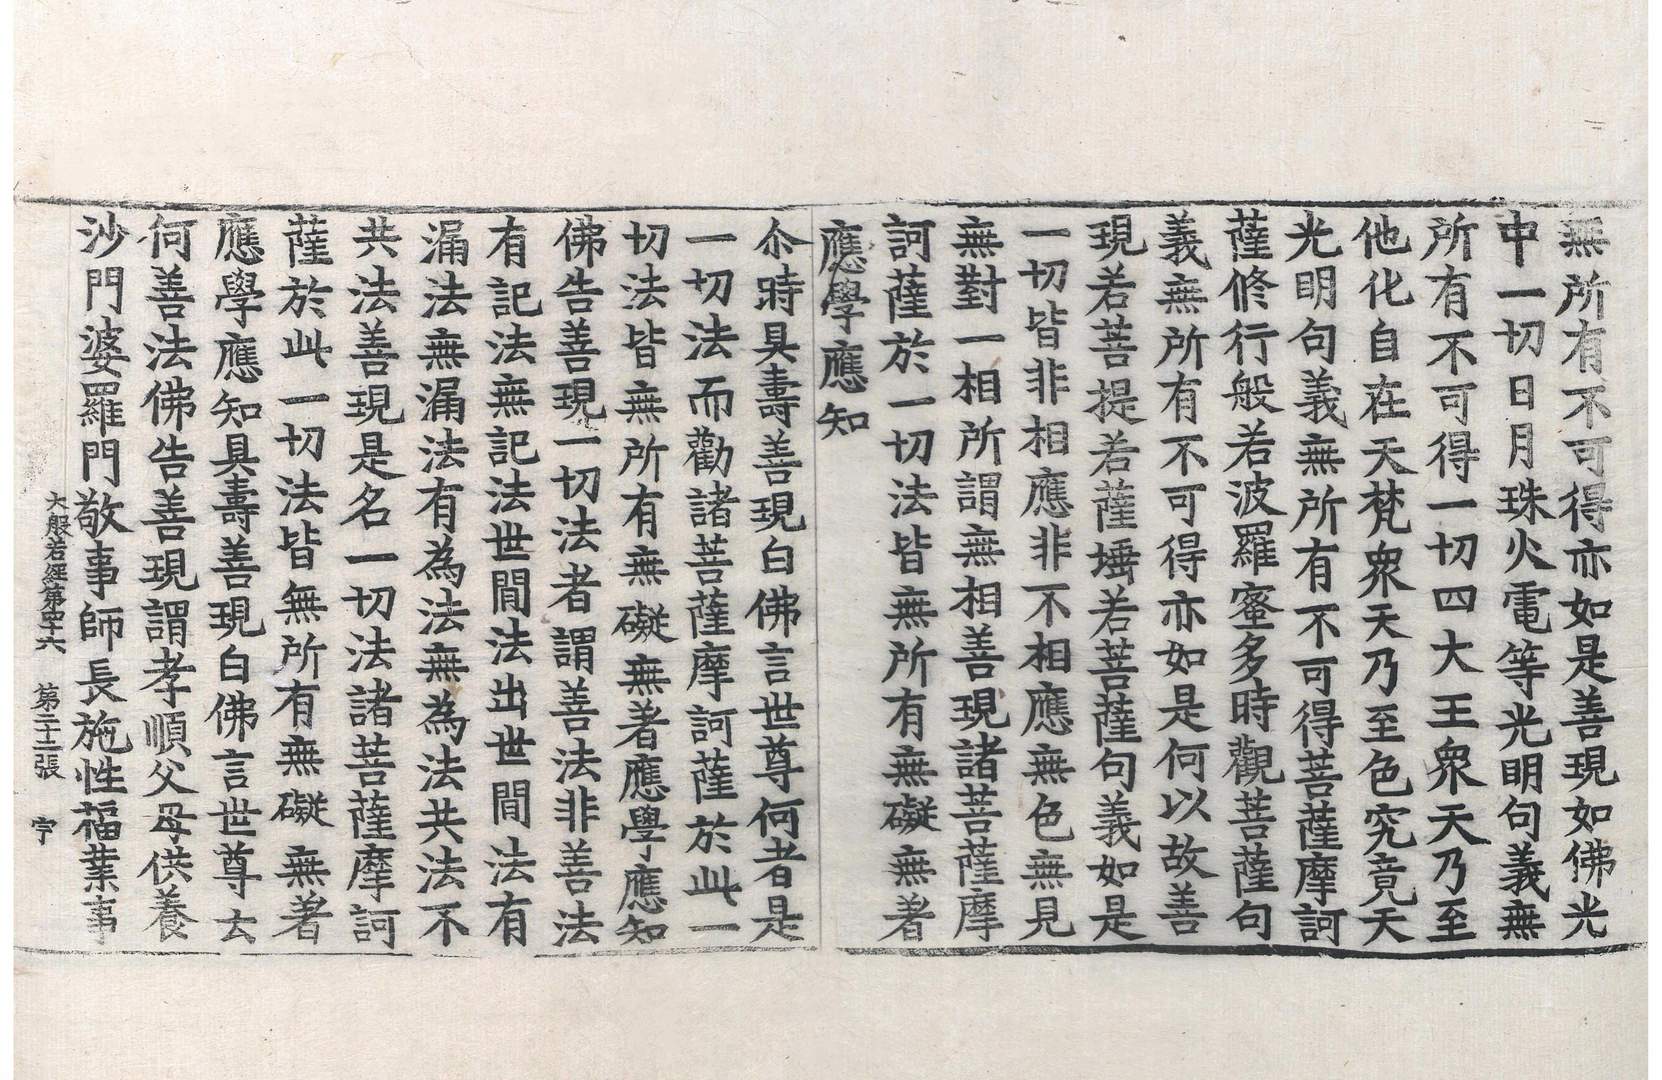 無所有不可得亦如是善現如佛光
中一切日月珠火電等光明句義無
所有不可得一切四大王衆天乃至
他化自在天梵衆天乃至色究竟天
光明句義無所有不可得菩薩摩訶
薩修行般若波羅蜜多時觀菩薩句
義無所有不可得亦如是何以故善
現若菩提若薩埵若菩薩句義如是
一切皆非相應非不相應無色無見
無對一相所謂無相善現諸菩薩摩
訶薩於一切法皆無所有無礙無著
應學應知
尒時具壽善現白佛言世尊何者是
一切法而勸諸菩薩摩訶薩於此一
切法皆無所有無礙無著應學應知
佛告善現一切法者謂善法非善法
有記法無記法世間法出世間法有
漏法無漏法有為法無為法共法不
共法善現是名一切法諸菩薩摩訶
薩於此一切法皆無所有無礙無著
應學應知具壽善現白佛言世尊云
何善法佛告善現謂孝順父母供養
沙門婆羅門敬事師長施性福業事
大般若經第四十六 第二十二張 宇